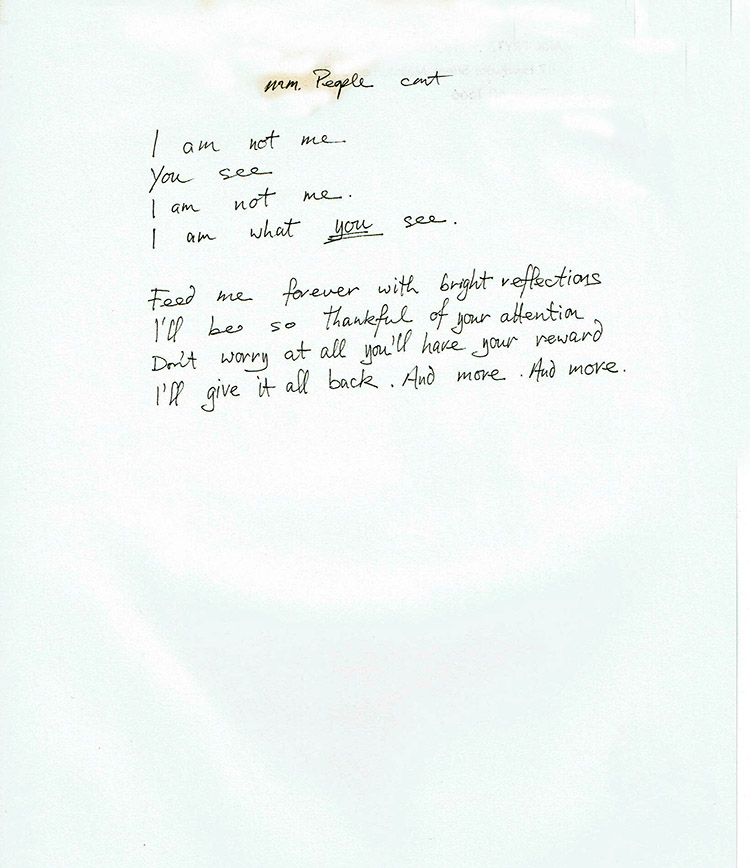 mrm. People cont
I am not me.
You see
I am not me.
I am what you see.
Feed me forever with bright reflections
I'll be so thankful of your attention
Don't worry at all you'll have your reward
I'll give it all back. And more. And more.